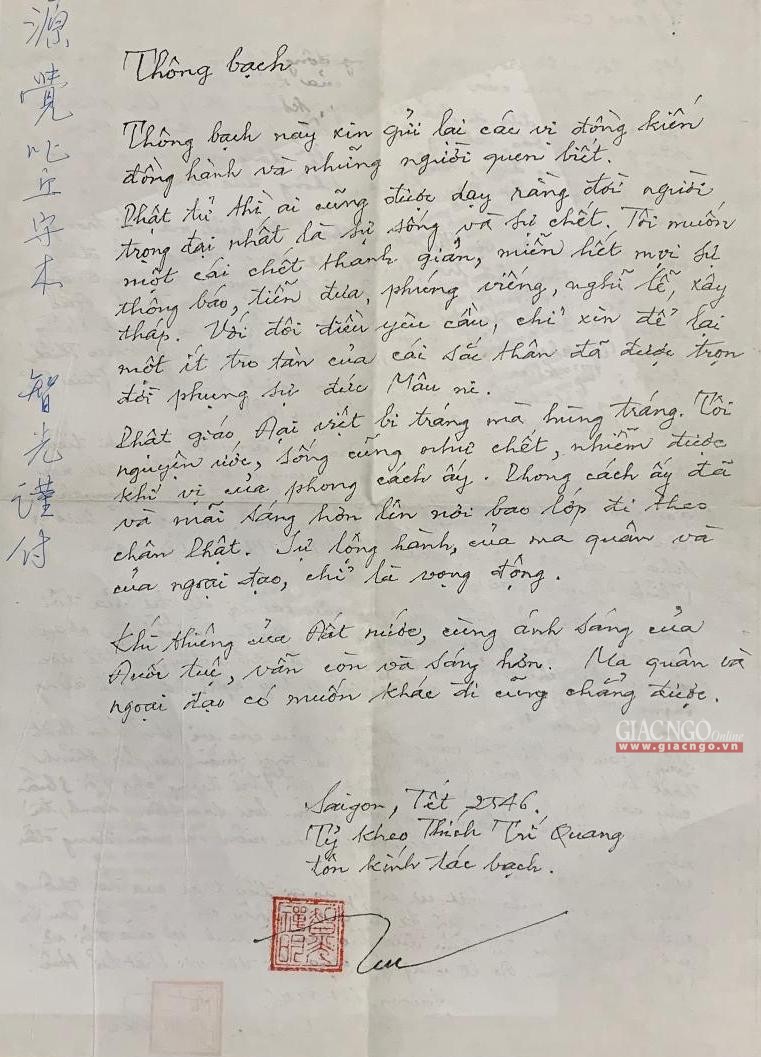 Thông bạch
Thông bạch này xin gửi lại các vị đồng kiến
đồng hành và những người quen biết.
Phật tử thì ai cũng được dạy rằng đời người
trọng đại nhất là sự sống và sự chết. Tôi muốn
một cái chết thanh giản, miễn hết mọi sự
thông báo, tiễn đưa, phúng viếng, nghi lễ, xây
tháp. Với đôi điều yêu cầu, chỉ xin để lại
một ít tro tàn của cái sắc thân đã được trọn
đời phụng sự đức Mâu ni.
Phật giáo Đại việt bi tráng mà hùng tráng. Tôi
nguyện ước, sống cũng như chết, nhiễm được
khí vị của phong cách ấy. Phong cách ấy đã
và mãi sáng hơn lên nơi bao lớp đi theo
chân Phật. Sự lộng hành, của ma quân và
của ngoại đạo, chỉ là vọng động.
Khí thiêng của Đất nước, cùng ánh sáng của
Đuốc tuệ, vẫn còn và sáng hơn. Ma quân và
ngoại đạo có muốn khác đi cũng chẳng được.
Saigon, Tết 2546.
Tỷ kheo Thích Trí Quang
tôn kính tác bạch.
源覺比丘守本
智光謹付
GIACNGO Online
www.giacngo.vn